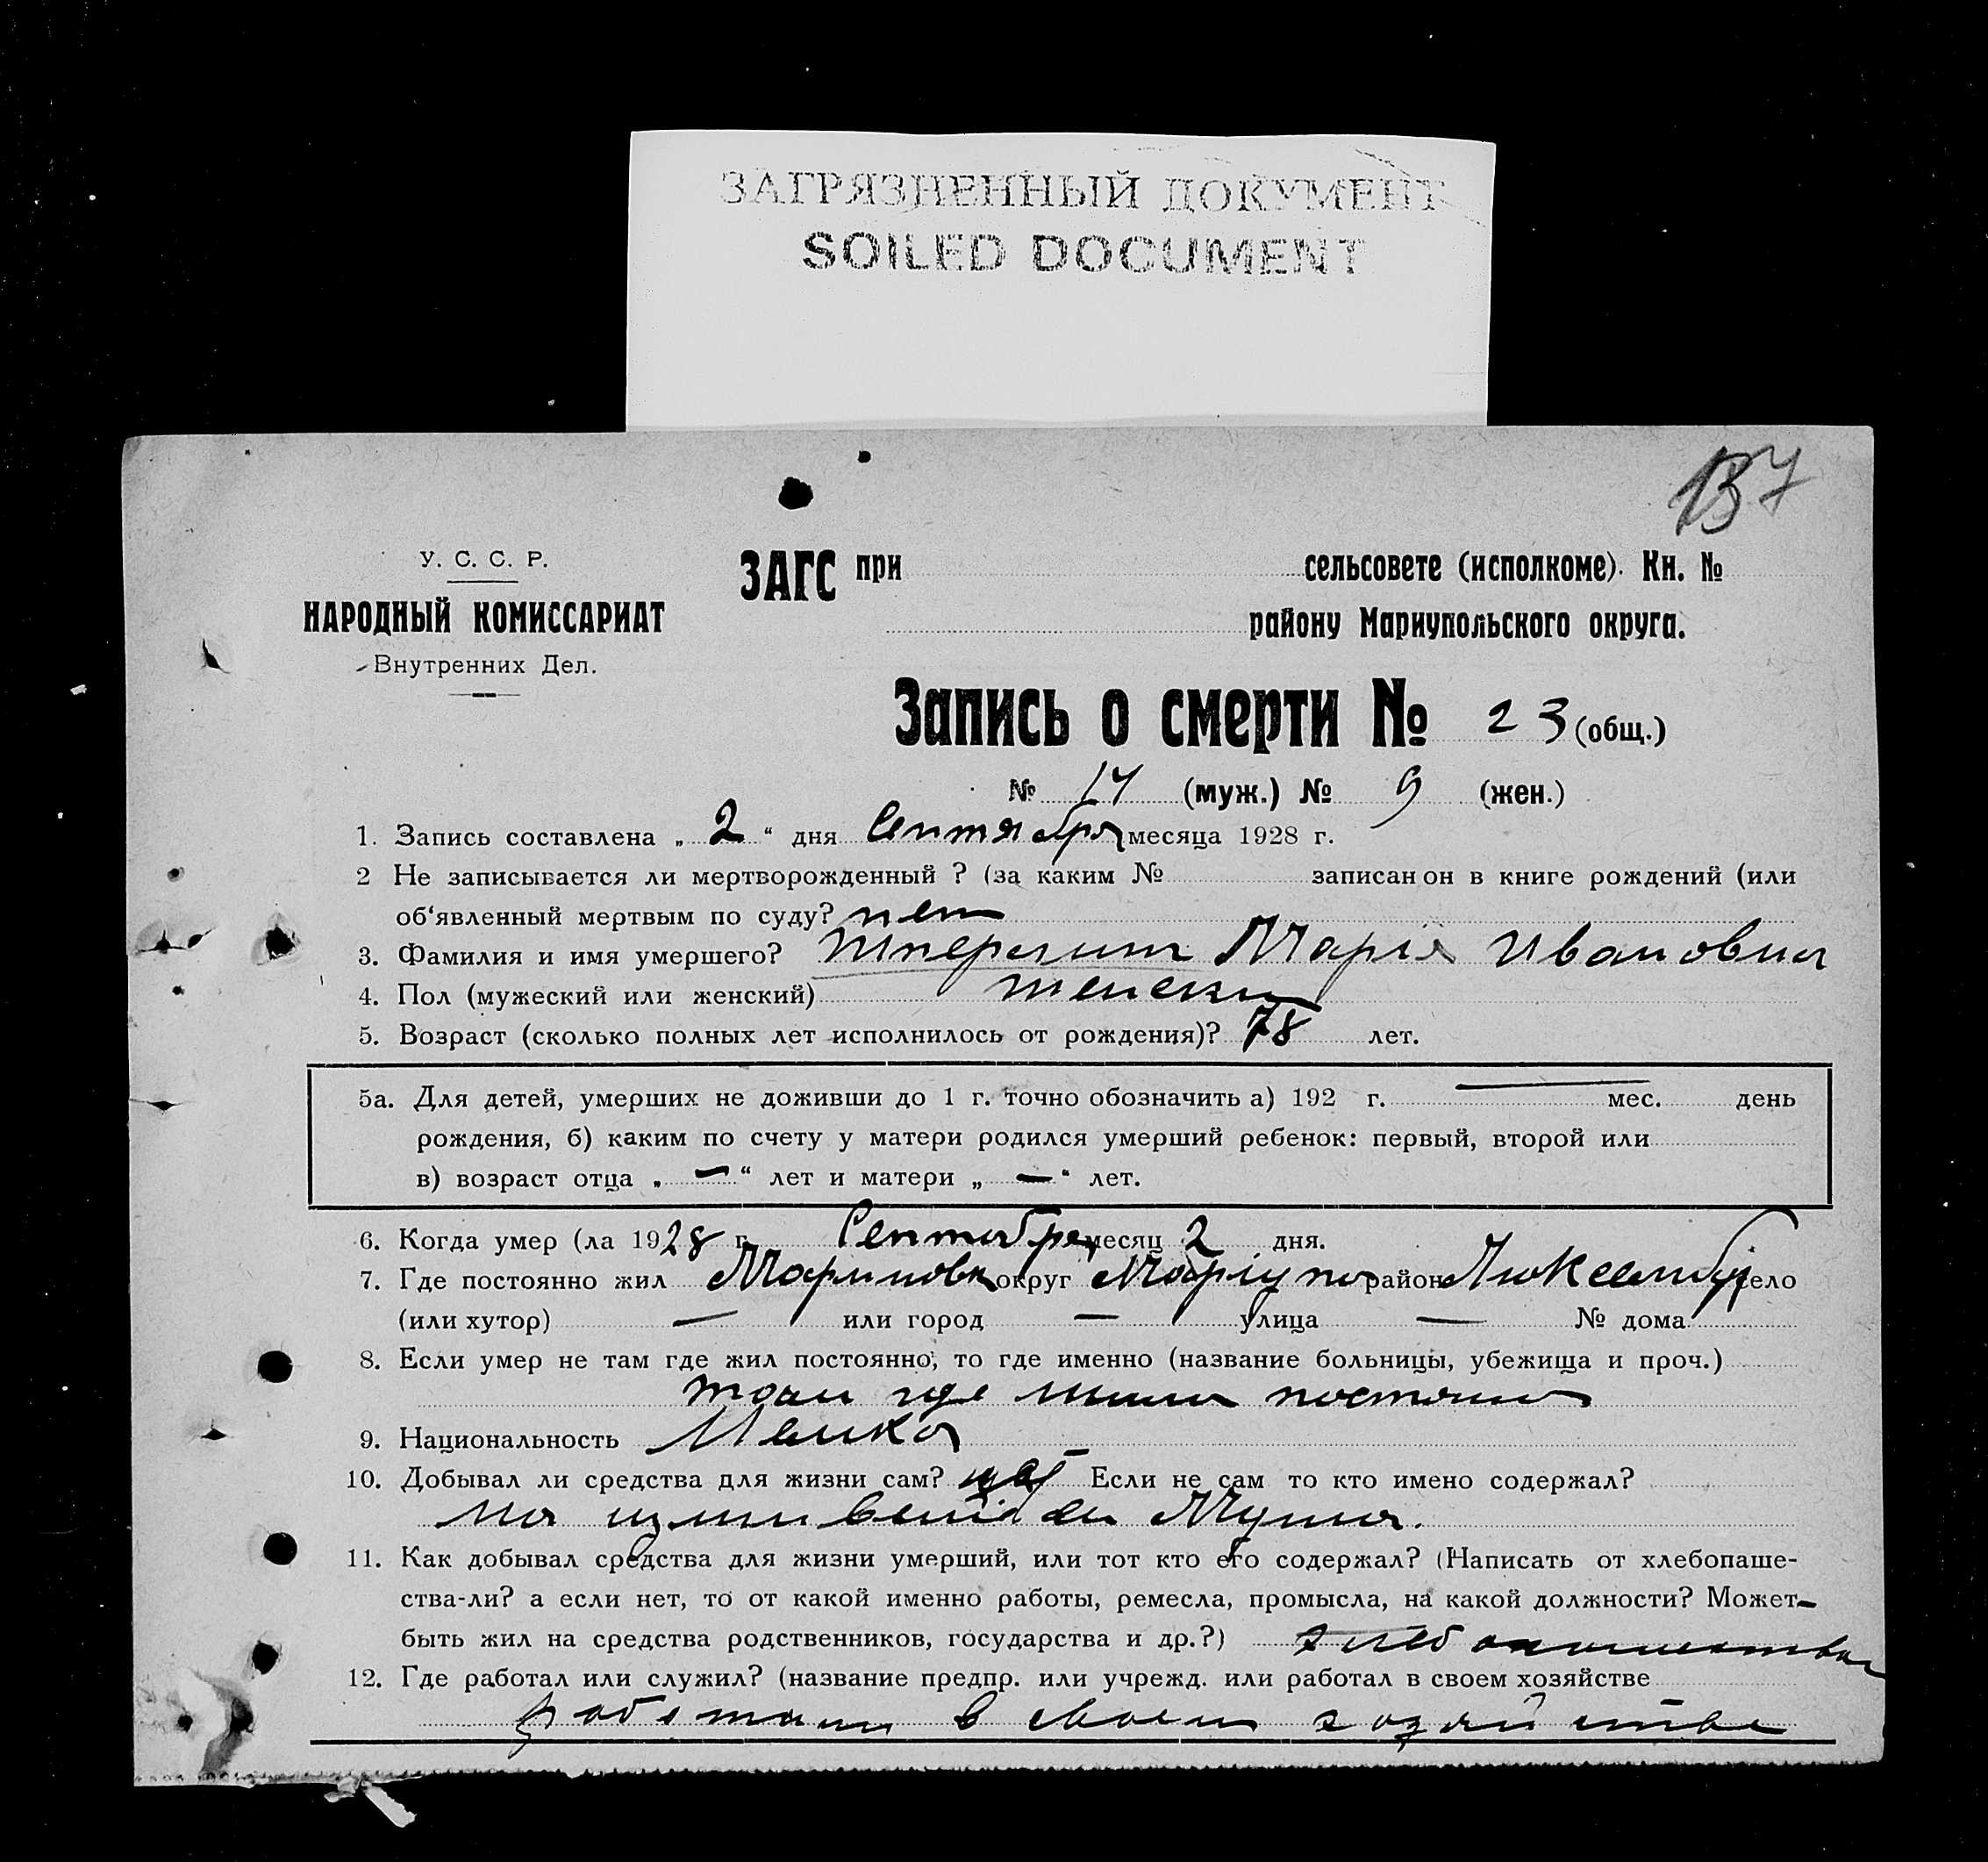 ЗАГРЯЗНЕННЫЙ ДОКУМЕНТ
SOILED DOCUMENT
137
У. С. С. Р.
НАРОДНЫЙ КОМИССАРИАТ
Внутренних Дел.
ЗАГС при сельсовете (исполкоме). Кн. №
району Мариупольского округа.
Запись о смерти № 23 (общ.)
№ 14 (муж.) № 9 (жен.)
1. Запись составлена „ 2 “ дня Сентября месяца 1928 г.
2 Не записывается ли мертворожденный ? (за каким № записан он в книге рождений (или
об‘явленный мертвым по суду? нет
3. Фамилия и имя умершего? Марія Ивановна
4. Пол (мужеский или женский) женски
5. Возраст (сколько полных лет исполнилось от рождения)? 78 лет.
5а. Для детей, умерших не доживши до 1 г. точно обозначить а) 192 г. — мес. день
рождения, б) каким по счету у матери родился умерший ребенок: первый, второй или
в) возраст отца „ — “ лет и матери „ — “ лет.
6. Когда умер (ла 1928 г. Сентября месяц 2 дня.
7. Где постоянно жил округ район село
(или хутор) — или город — улица — № дома
8. Если умер не там где жил постоянно, то где именно (название больницы, убежища и проч.)
там где жила постоянно
9. Национальность Немка
10. Добывал ли средства для жизни сам? Если не сам то кто имено содержал?
на Мужа.
11. Как добывал средства для жизни умерший, или тот кто его содержал? (Написать от хлебопаше-
ства-ли? а если нет, то от какой именно работы, ремесла, промысла, на какой должности? Может
быть жил на средства родственников, государства и др.?) хлебопашества
12. Где работал или служил? (название предпр. или учрежд. или работал в своем хозяйстве
работал в своем хозяйстве